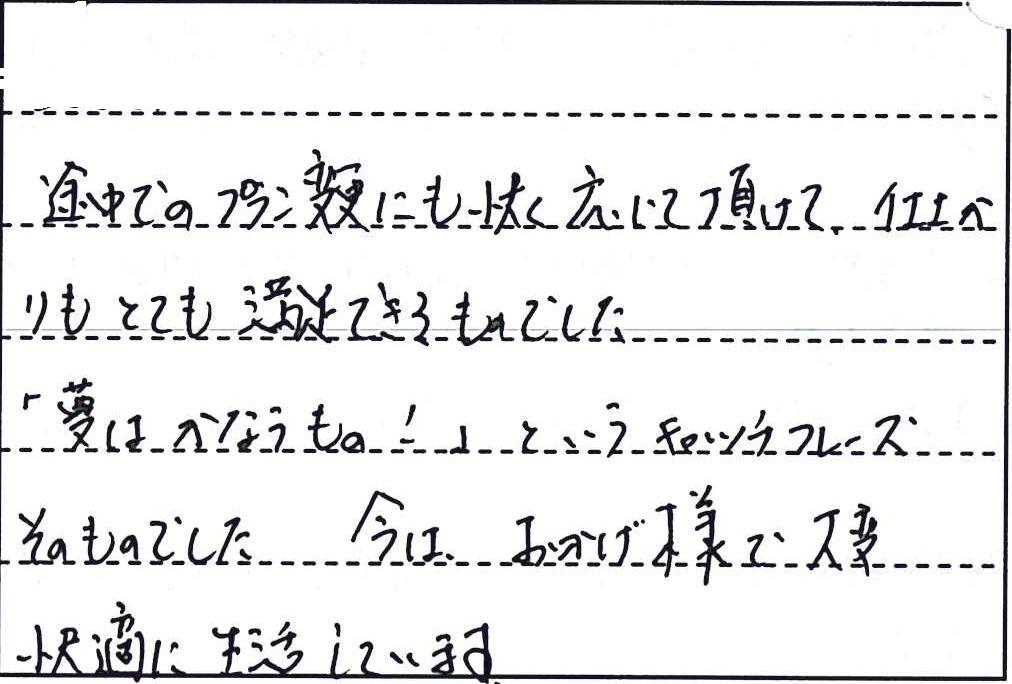 途中でのプラン変更にも快く応じて頂けて、仕上が
りもとても満足できるものでした
「夢はかなうもの!」というキャッチフレーズ
そのものでした 今は、おかげ様で大変
快適に生活しています